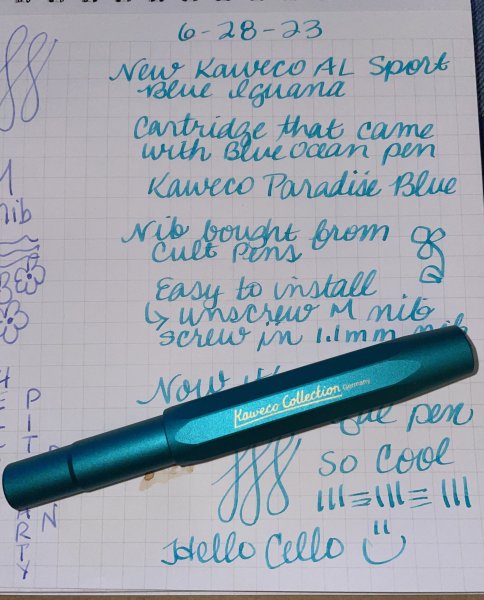 6-28-23
New Kaweco AL Sport
Blue Iguana
Cartridge that came
with Blue Ocean pen
Kaweco Paradise Blue
Nib bought from
Cult Pens
Easy to install
↳ unscrew M nib
screw in 1.1mm nib
Now
Kaweco Collection Germany
pen
so cool
Hello Cello
M
nib
PIT
ARTY